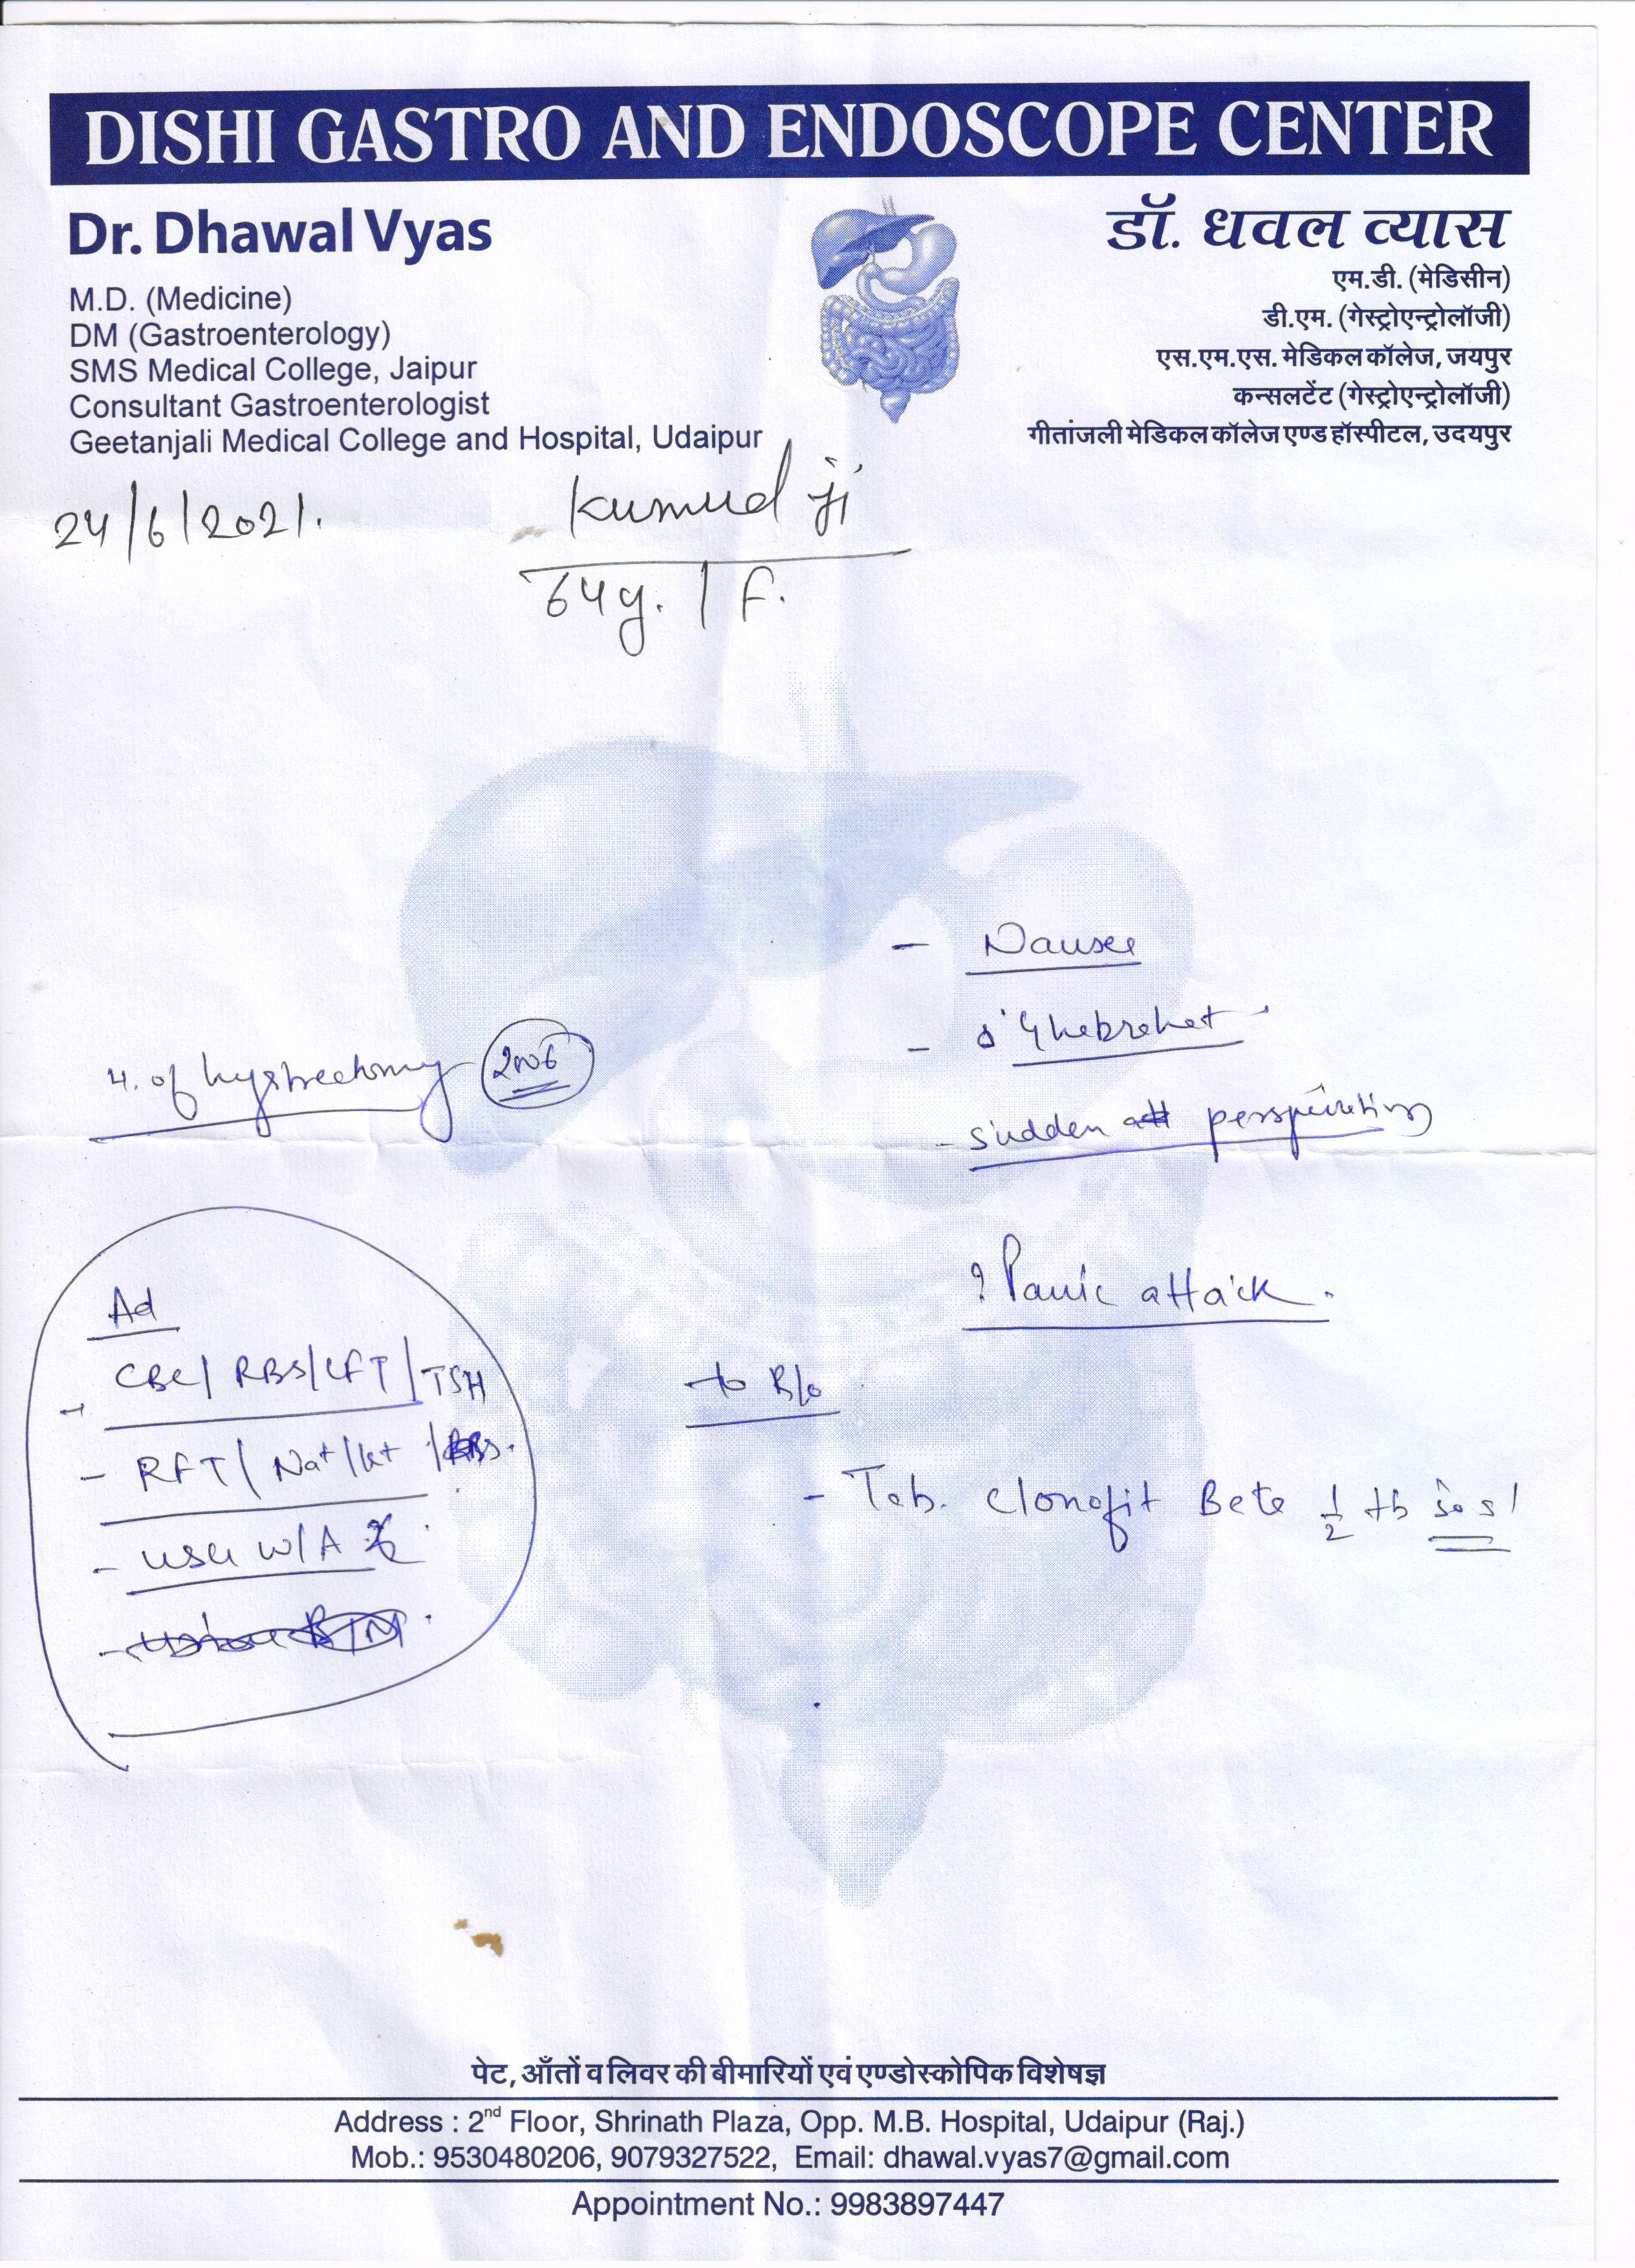 DISHI GASTRO AND ENDOSCOPE CENTER
Dr. Dhawal Vyas
M.D. (Medicine)
DM (Gastroenterology)
SMS Medical College, Jaipur
Consultant Gastroenterologist
Geetanjali Medical College and Hospital, Udaipur
डॉ. धवल व्यास
एम.डी. (मेडिसीन)
डी.एम. (गेस्ट्रोएन्ट्रोलॉजी)
एस.एम.एस. मेडिकल कॉलेज, जयपुर
कन्सलटेंट (गेस्ट्रोएन्ट्रोलॉजी)
गीतांजली मेडिकल कॉलेज एण्ड हॉस्पीटल, उदयपुर
24/6/2021.
Kumud ji
64y. / F.
- Nausea
- Ghebrehet
- sudden perspiration
H. of hystrectomy 2006
? Panic attack.
Ad
- CBC/ RBS/LFT/TSH
- RFT/ Na+/K+
- USG W/A
to R/o
- Tab. Clonofit Beta 1/2 tb sos
पेट, आँतों व लिवर की बीमारियों एवं एण्डोस्कोपिक विशेषज्ञ
Address : 2nd Floor, Shrinath Plaza, Opp. M.B. Hospital, Udaipur (Raj.)
Mob.: 9530480206, 9079327522, Email: dhawal.vyas7@gmail.com
Appointment No.: 9983897447